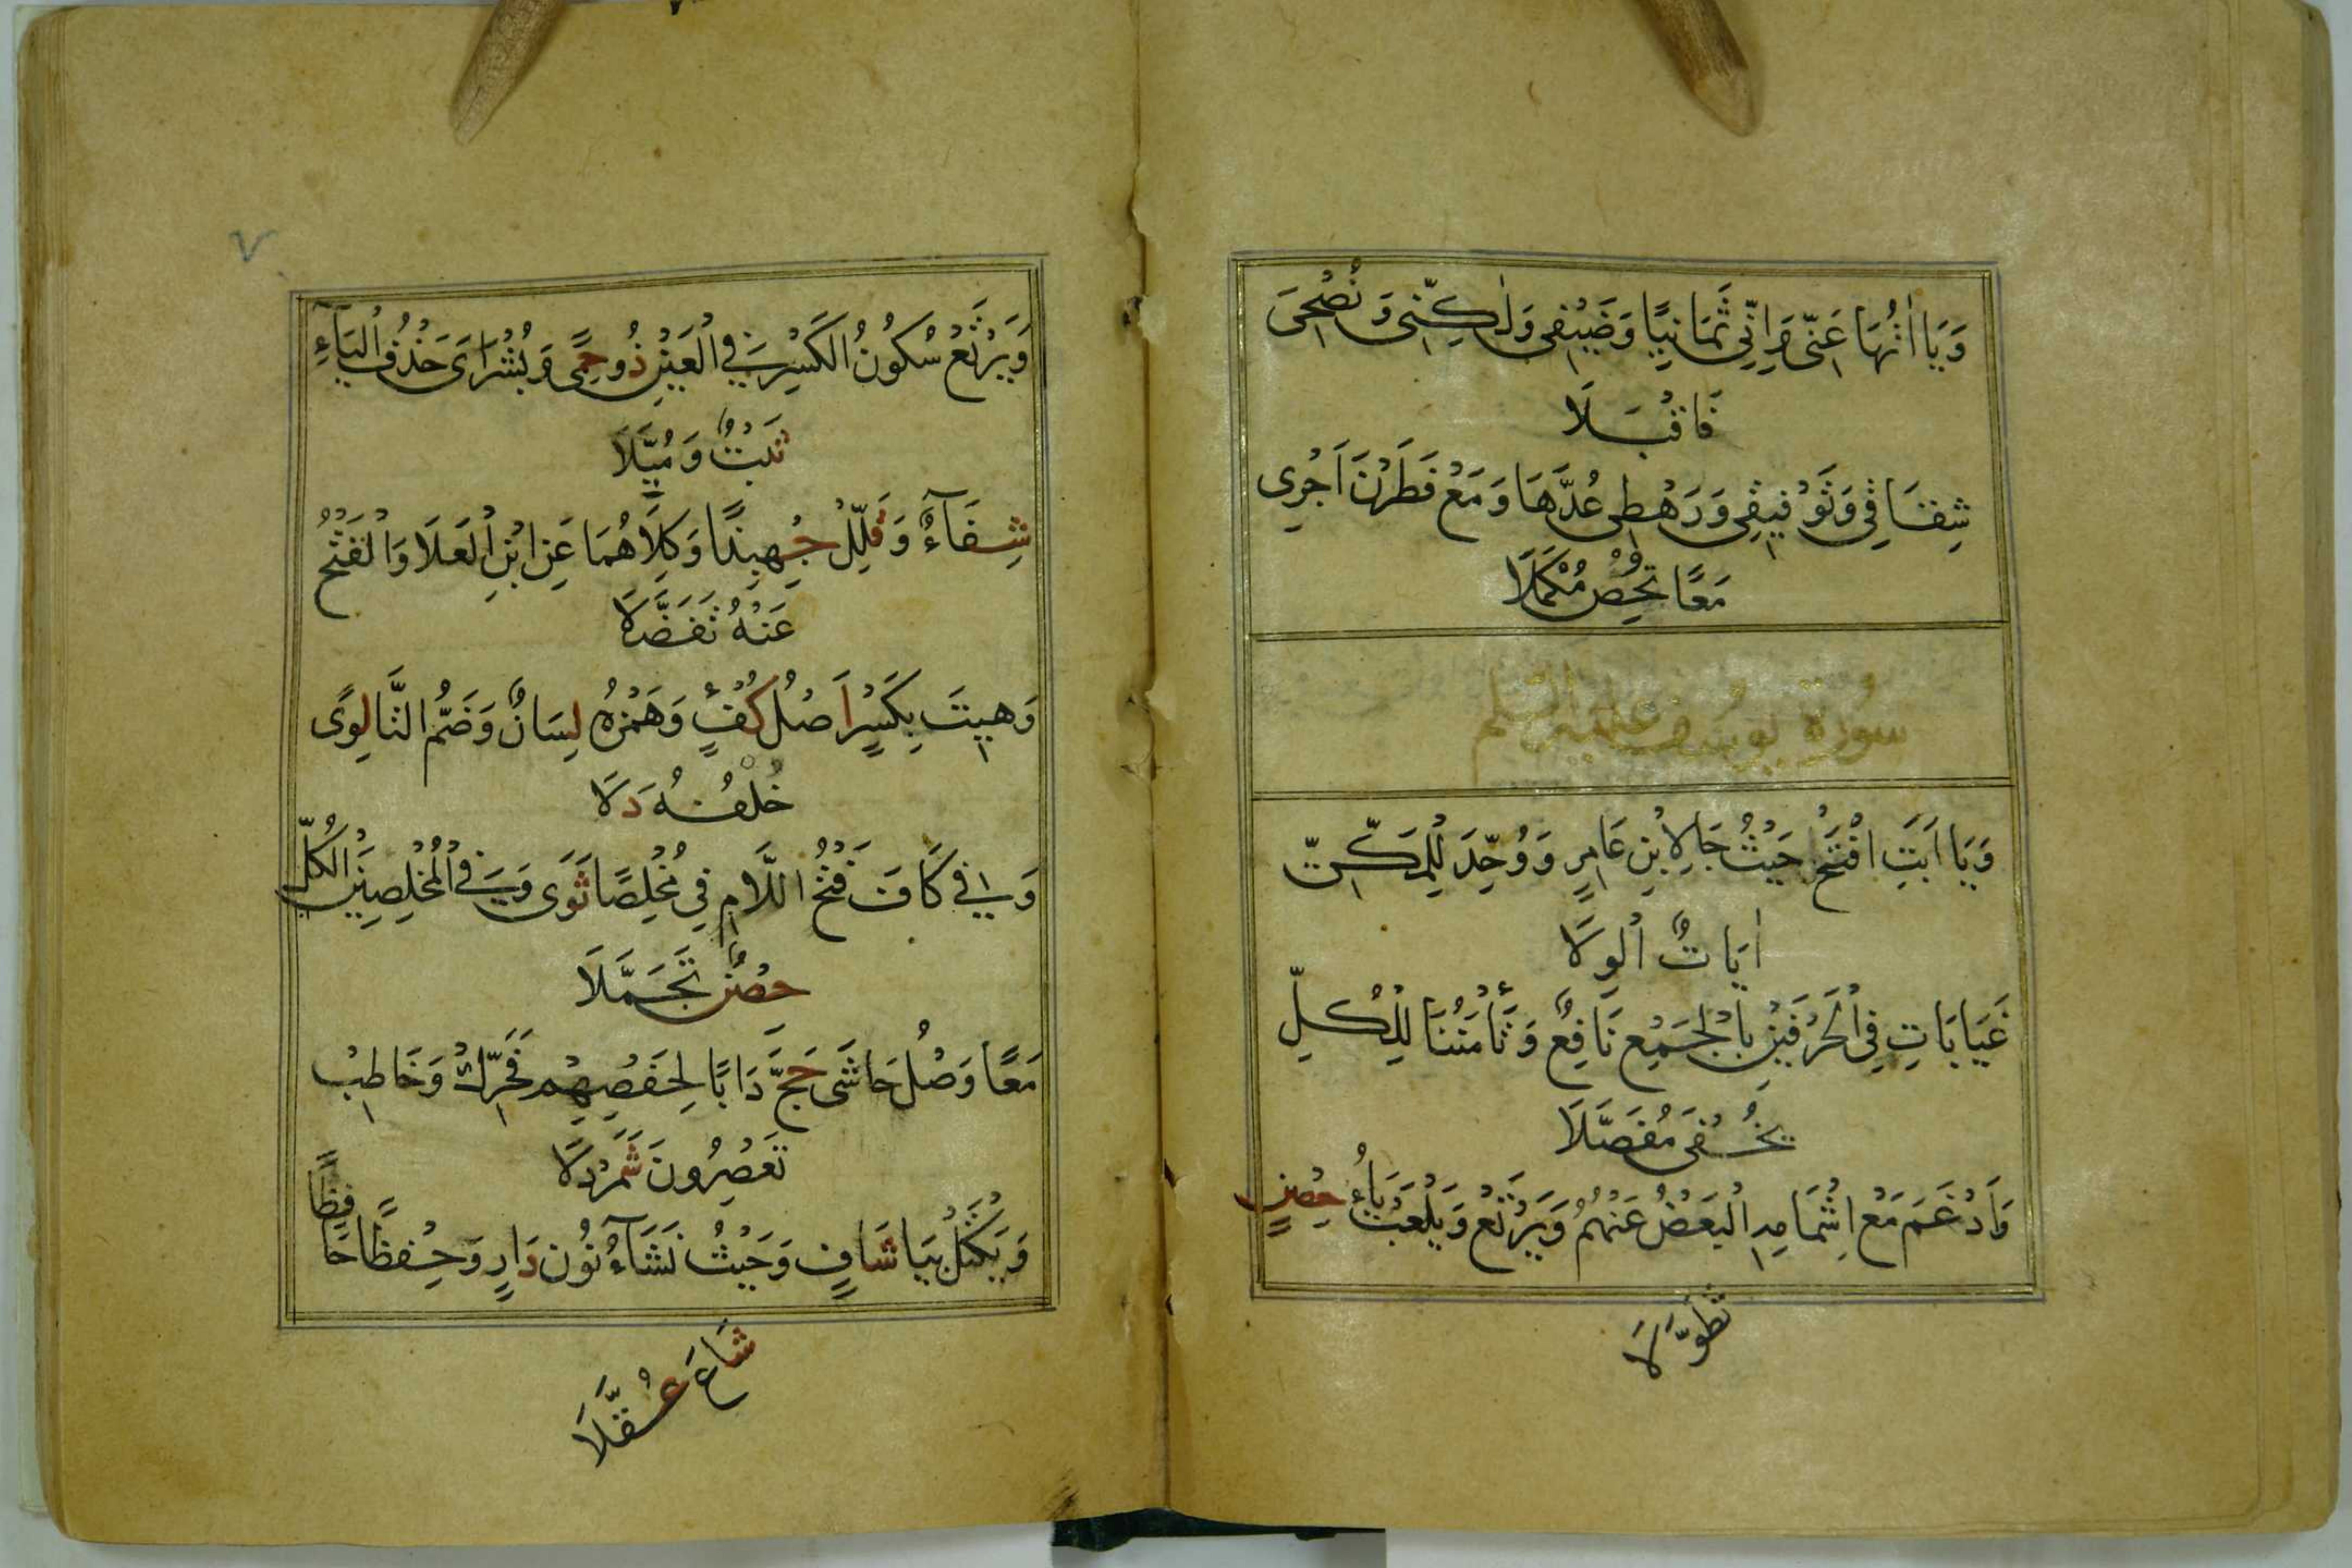 وَيَا اٰتُهَا عَنِّى وَاِنِّى ثَمَانِيًا وَضَيْفِى وَلٰكِنِّى وَنُصْحِىَ
فَاقْبَلَا
شِقَاقِى وَتَوْفِيقِى وَرَهْطِى عُدَّهَا وَمَعْ فَطَرَنَ اَجْرِى
مَعًا تُحْصِ مُكْمَلَا
سورة يوسف عليه السلم
وَيَا اَبَتِ افْتَحْ حَيْثُ جَا لِابْنِ عَامِرٍ وَوُحِّدَ لِلْمَكِّىّ
اٰيَاتٌ الْوِلَا
غَيَابَاتِ فِى الْحَرْفَيْنِ بِالْجَمْعِ نَافِعٌ وَتَأْمَنُنَا لِلْكُلِّ
يُخْفَى مُفَصَّلَا
وَاَدْغَمَ مَعْ اِشْمَامِهِ الْبَعْضُ عَنْهُمُ وَيَرْتَعْ وَيَلْعَبْ يَاءُ حِصْنٍ
تَطَوَّلَا
٧
وَيَرْتَعْ سُكُونُ الْكَسْرِ فِى الْعَيْنِ ذُو حِمًى وَبُشْرَاىَ حَذْفُ الْيَآءِ
ثَبْتٌ وَمُيِّلَا
شِفَآءً وَقَلِّلْ جِهْبِذًا وَكِلَاهُمَا عَنِ ابْنِ الْعَلَا وَالْفَتْحُ
عَنْهُ تَفَضَّلَا
وَهَيْتَ بِكَسْرٍ اَصْلُ كُفْؤٍ وَهَمْزُهُ لِسَانٌ وَضَمُّ التَّا لِوًى
خُلْفُهُ دَلَا
وَفِى كَافَ فَتْحُ اللَّامِ فِى مُخْلِصًا ثَوَى وَفِى الْمُخْلِصِينَ الْكُلِّ
حِصْنٌ تَجَمَّلَا
مَعًا وَصْلُ حَاشَى حَجَّ دَابًا لِحَفْصِهِمْ فَحَرِّكْ وَخَاطِبْ
تَعْصِرُونَ شَمَرْدَلَا
وَيَكْتَلْ بِيَا شَافٍ وَحَيْثُ نَشَآءُ نُونُ دَارٍ وَحِفْظًا حَافِظًا
شَاعَ عُقَّلَا